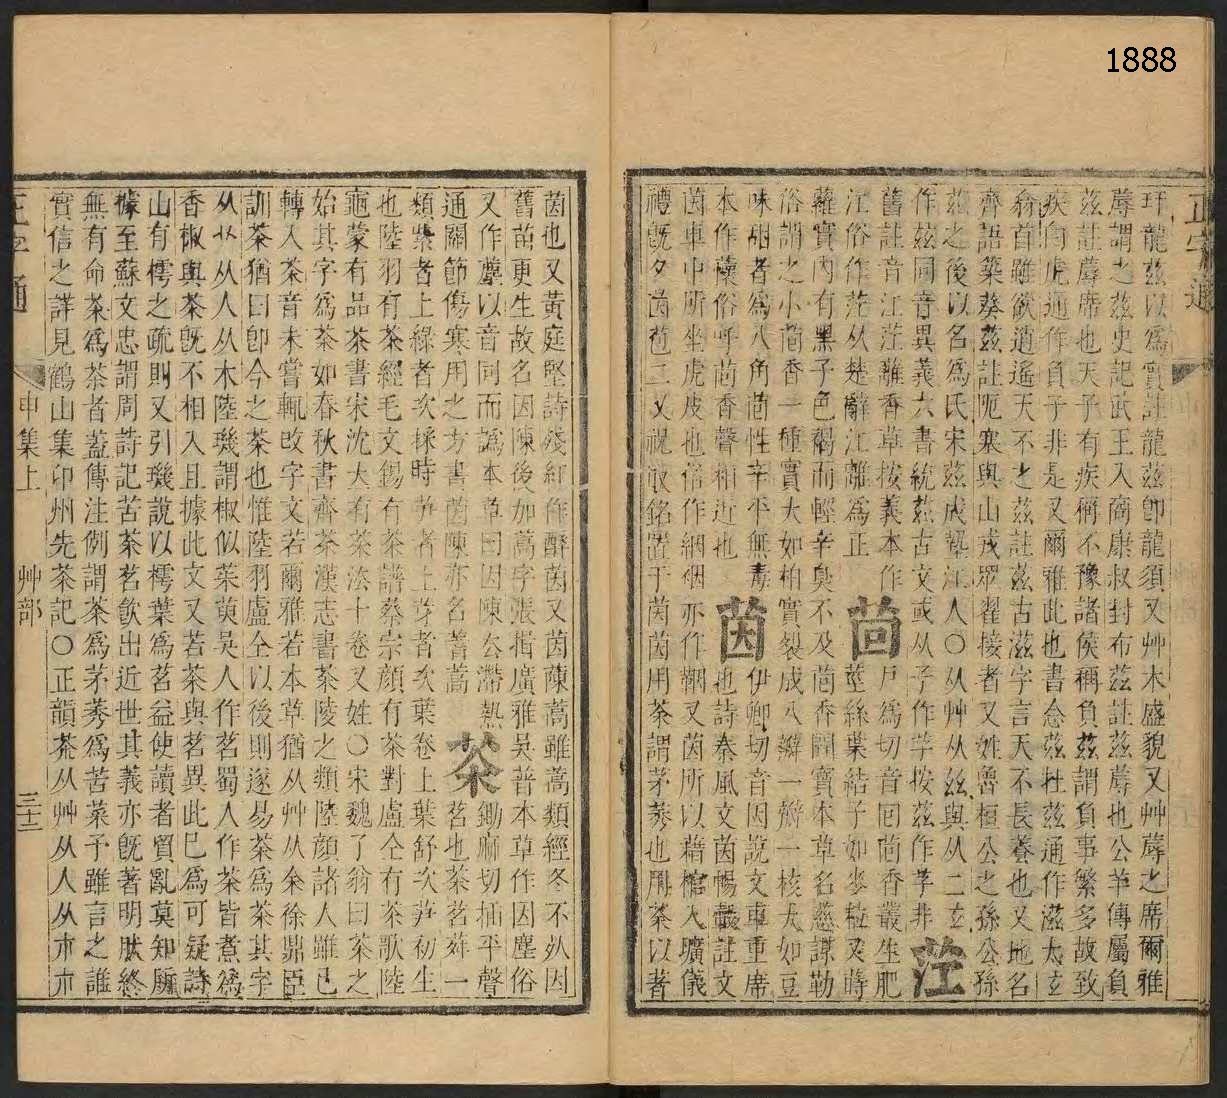 1888
正字通
玕龍茲以爲實註龍茲卽龍須又艸木盛貌又艸蓐之席爾雅
蓐謂之茲史記武王入商康叔封布茲註茲蓐也公羊傳屬負
茲註蓐席也天子有疾稱不豫諸侯稱負茲謂負事繁多故致
疾白虎通作負子非是又爾雅此也書念茲杜茲通作滋太玄
翕首雖欲逍遙天不之茲註茲古滋字言天不長養也又地名
齊語築葵茲註阨塞與山戎眾翟接者又姓魯桓公之孫公孫
茲之後以名爲氏宋茲成塾江人○从艸从絲與从二玄
作茲同音異義六書統茲古文或从子作孳按茲作孳非 茳
舊註音江茳蘺香草按義本作
江俗作茳从楚辭江離爲正 茴 戸爲切音回茴香叢生肥
莖絲葉結子如麥粒又蒔
蘿實內有黑子色褐而輕辛臭不及茴香開寶本草名慈謀勒
俗謂之小茴香一種實大如柏實裂成八瓣一瓣一核大如豆
味甜者爲八角茴性辛平無毒
本作蘹俗呼茴香聲相近也 茵 伊卿切音因說文車重席
也詩秦風文茵暢轂註文
茵車中所坐虎皮也俗作絪䄄亦作鞇又茵所以藉棺入壙儀
禮旣夕茵苞二又祝取銘置于茵茵用茶謂茅莠也用茶以著
茵也又黃庭堅詩殘紅作醉茵又茵陳蒿雖蒿類經冬不死因
舊苗更生故名因陳後加蒿字張揖廣雅吳普本草作因塵俗
又作䕃以音同而譌本草曰因陳公滯熱
通關節傷寒用之方書茵陳亦名蒿蒿 茶 鋤麻切插平聲
茗也茶茗莽一
類紫者上綠者次採時筍者上芽者次葉卷上葉舒次筍初生
也陸羽有茶經毛文錫有茶譜蔡宗顔有茶對盧仝有茶歌陸
龜蒙有品茶書宋沈大有茶法十卷又姓○宋魏了翁曰茶之
始其字爲茶如春秋書齊茶漢志書茶陵之類陸顏諸人雖已
轉入茶音未嘗輒改字文若爾雅若本草猶从艸从余徐鼎臣
訓茶猶曰卽今之茶也惟陸羽盧仝以後則遂易茶爲茶其字
从艸从人从木陸璣謂椒似茱萸吳人作茗蜀人作茶皆煮爲
香椒與茶旣不相入且據此文又若茶與茗異此已爲可疑詩
山有樗之疏則又引璣說以樗葉爲茗益使讀者貿亂莫知所
據至蘇文忠謂周詩記苦茶茗飮出近世其義亦旣著明肰終
無有命茶爲茶者蓋傳注例謂茶爲茅莠爲苦菜予雖言之誰
實信之詳見鶴山集卬州先茶記○正韻茶从艸从人从朮朮
正字通 申集上 艸部 三十二